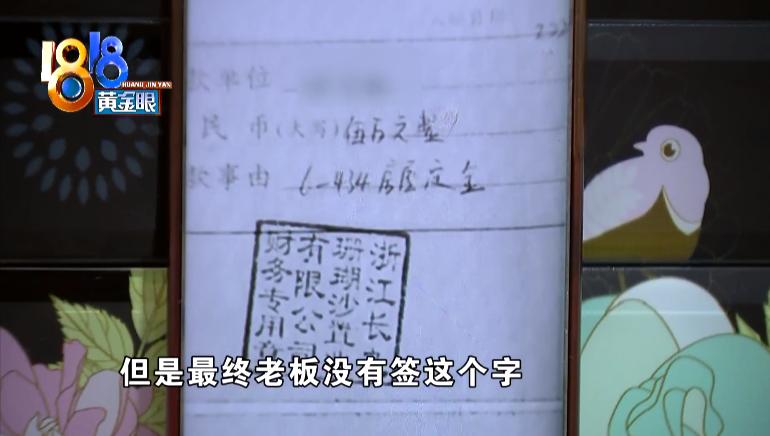 1818
HUANG JIN YAN
黄金眼
款单位
民币(大写)伍万元整
款事由 6-434房屋定金
浙江长
珊瑚沙置
有限公司
财务专用章
但是最终老板没有签这个字